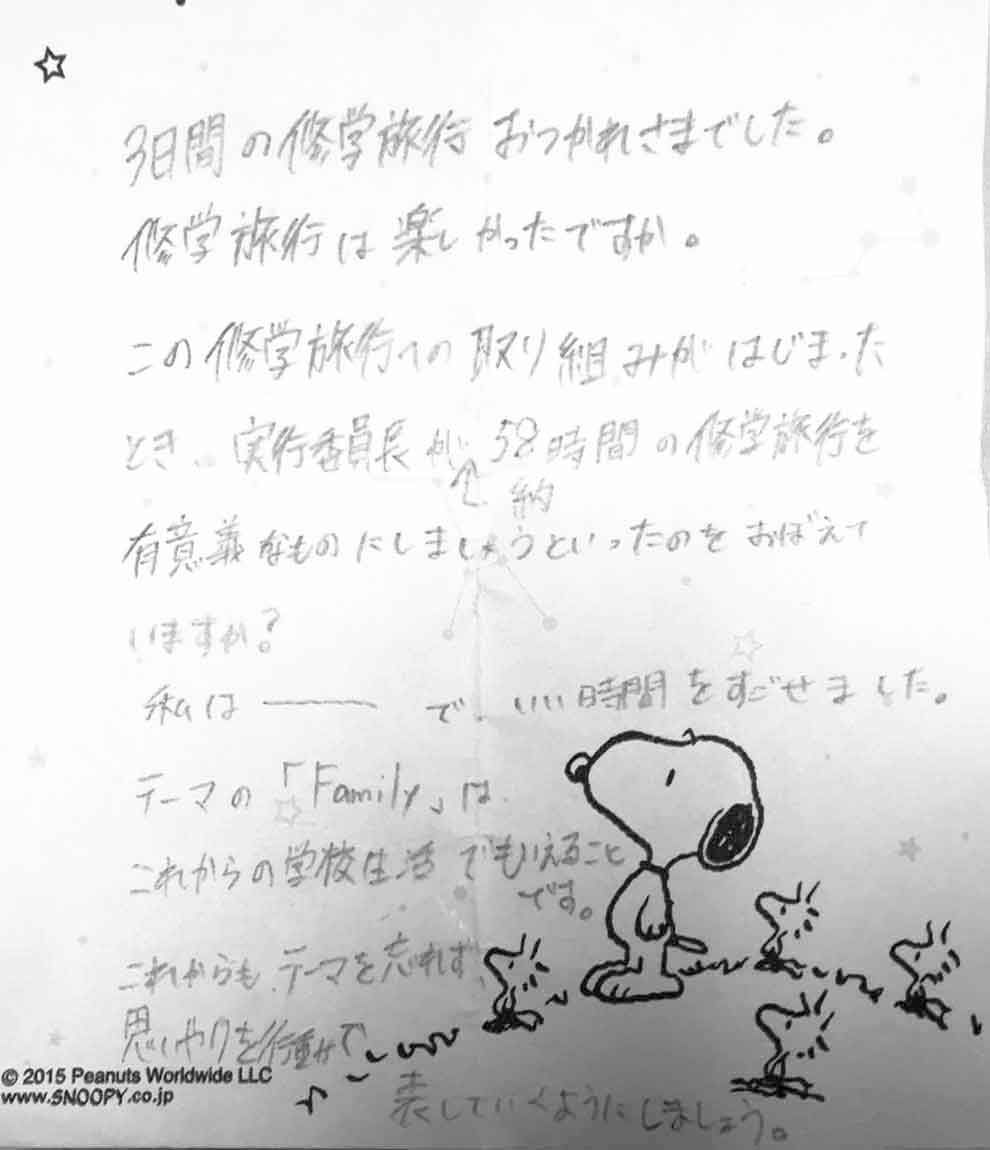 3日間の修学旅行 おつかれさまでした。
修学旅行は楽しかったですか。
この修学旅行への取り組みがはじまった
とき、実行委員長が 58時間の修学旅行を
↑ 約
有意義なものにしましょうといったのをおぼえて
いますか?
私は ── で いい時間をすごせました。
テーマの「Family」は
これからの学校生活でもいえること
です。
これからも、テーマを忘れず、
思いやりを行動で
表していくようにしましょう。
© 2015 Peanuts Worldwide LLC
www.SNOOPY.co.jp